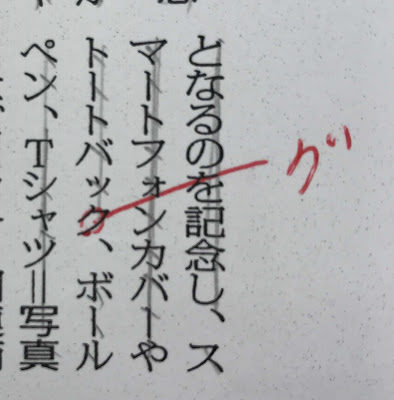 となるのを記念し、ス
マートフォンカバーや
トートバック、ボール
ペン、Tシャツ＝写真
グ